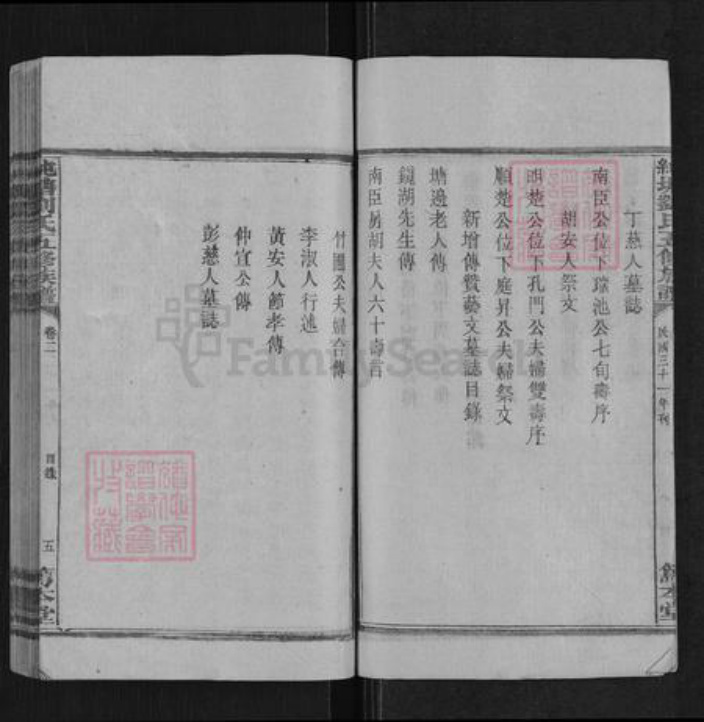 劉氏五修族譜
民國三十一年刊
篤本堂
丁慈人墓誌
南臣公位下瑞池公七旬壽序
胡安人祭文
明楚公位下孔門公夫婦雙壽序
順楚公位下庭昇公夫婦祭文
新增傳贊藝文墓誌目錄
塘邊老人傳
鏡湖先生傳
南臣房胡夫人六十壽言
竹圃公夫婦合傳
李淑人行述
黃安人節孝傳
仲宣公傳
彭慈人墓誌
劉氏五修族譜
卷二
目錄
五
篤本堂
FamilySearch